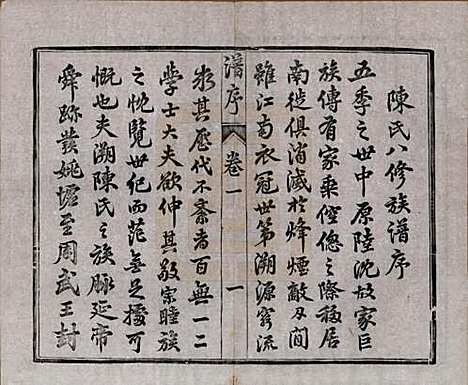 陳氏八修族譜序
五季之世中原陸沈故家巨
族傳有家乘倥傯之際移居
南徙俱消滅於烽煙敵刃間
雖江南衣冠世第溯源窮流
譜序
卷一
一
求其歷代不紊者百無一二
學士大夫欲仲其敬宗睦族
之忱覽世紀而茫無足據可
慨也夫溯陳氏之族脈延帝
舜跡發姚墟至周武王封